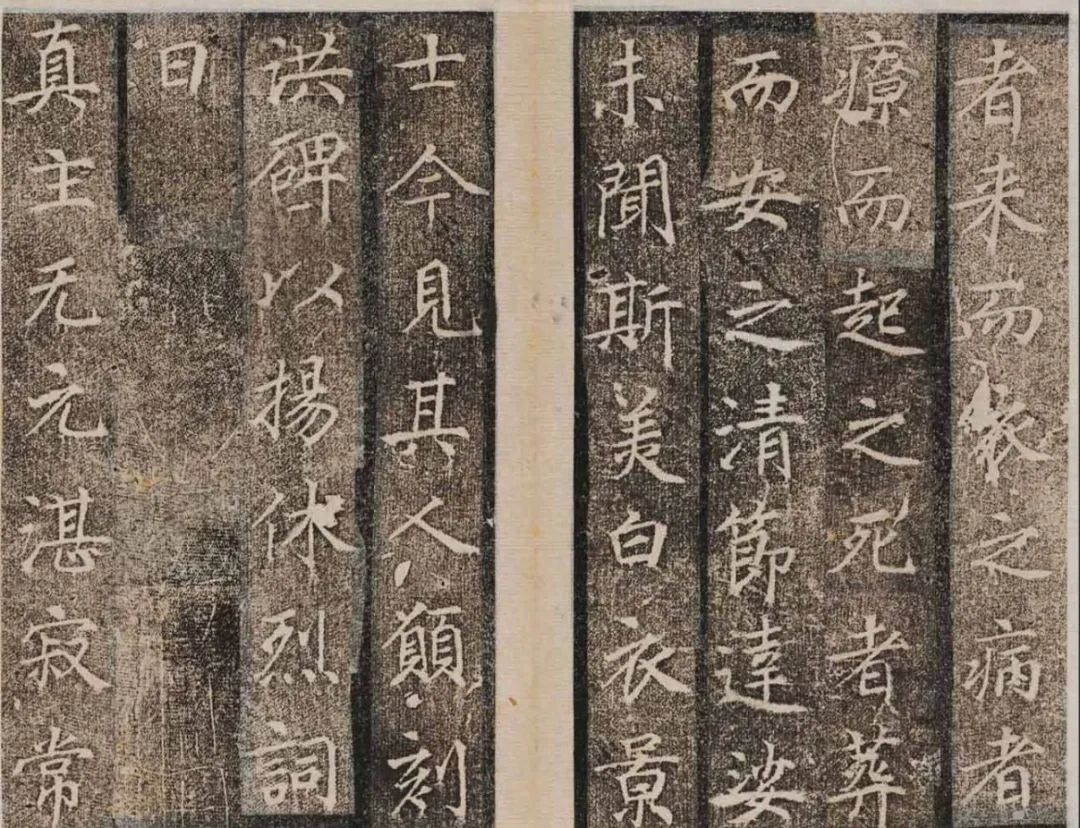 者来而衣之病者
療而起之死者葬
而安之清節達娑
未聞斯美白衣景
士今見其人願刻
洪碑以揚休烈詞
曰
真主无元湛寂常